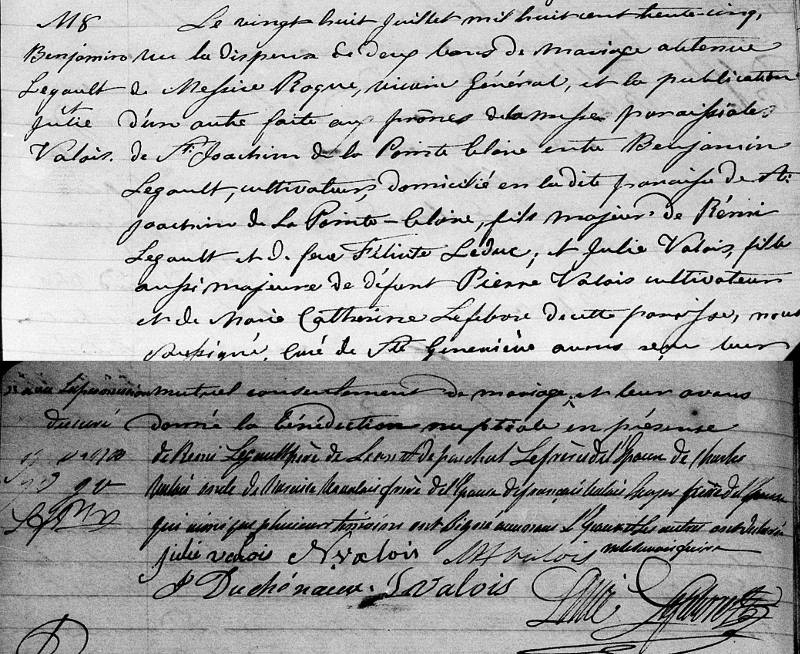 M8
Benjamin
Legault
et
Julie
Valois.
Le vingt huit Juillet mil huit cent trente cinq,
vu la dispense de deux bans de mariage obtenue
de Messire Roque, vicaire Général, et la publication
d'un autre faite au prônes de la messe paroissiale
de St. Joachim de la Pointe Claire entre Benjamin
Legault, cultivateur, domicilié en la dite paroisse de St.
Joachim de La Pointe-Claire, fils majeur de Rémi
Legault et de feue Félicité Leduc; et Julie Valois, fille
aussi majeure de défunt Pierre Valois cultivateur
et de Marie Catherine Lefebvre de cette paroisse, nous
soussigné, Curé de Ste Geneviève avons reçu leur
mutuel consentement de mariage et leur avons
donné la Bénédiction nuptiale en présence
de Rémi Legault père de de Paschal frère de l'Epoux de Charles
Valois oncle de frère de l'Epouse de françois Valois frère de l'Epouse
qui ainsi que plusieurs ont signé avec nous L'Epoux et les autres ont déclaré
ne le savoir faire
julie valois N valois MH valois
Duchéneaux. J valois
du curé